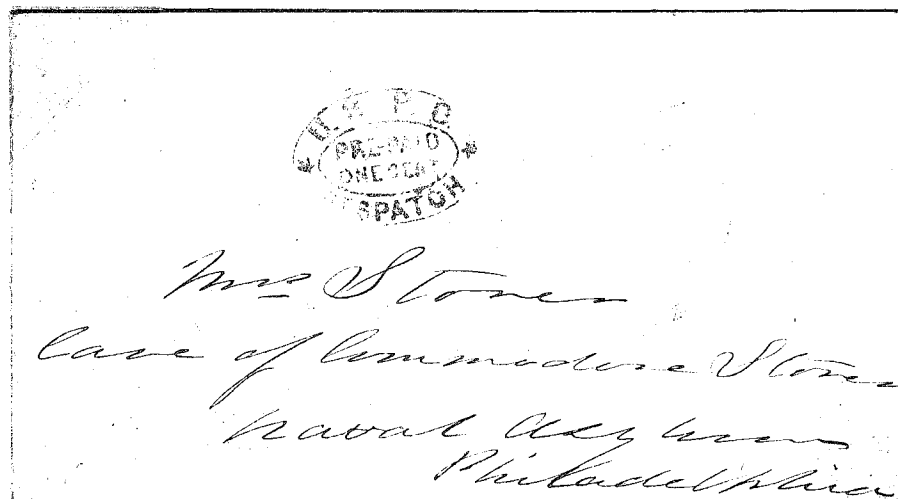 U.S. P.O.
PRE-PAID
ONE CENT
DESPATCH
Mrs Storer
Care of Commodore Storer
Naval Asylum
Philadelphia